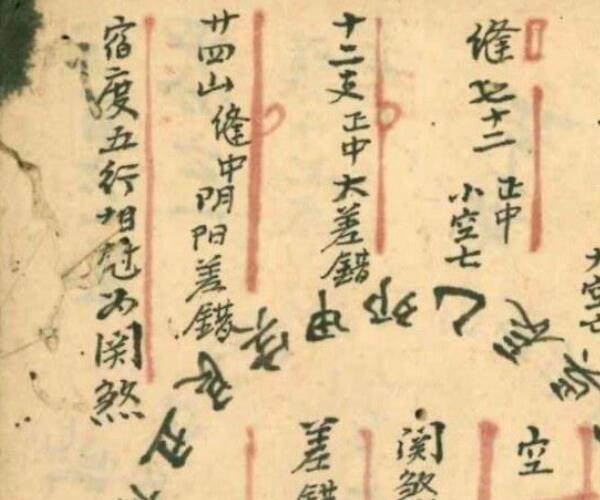 縫七十二正中
小空七
大空亡
十二支正中大差錯
廿四山縫中阴阳差錯
宿度五行相尅为関煞
乙卯甲寅艮丑
空
関煞
差錯